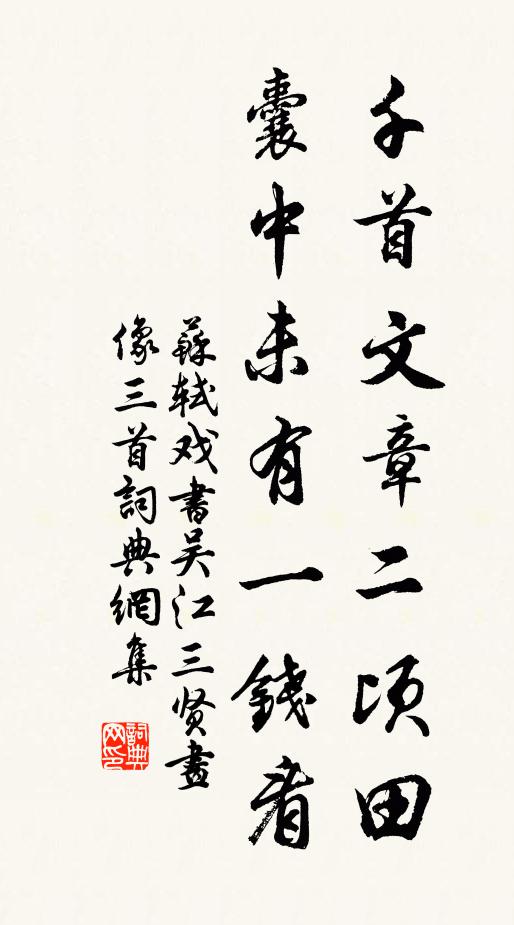 千首文章二頃田
囊中未有一錢看
蘇軾戏書吴江三贤畫
像三首詞典網集
詞典
网印